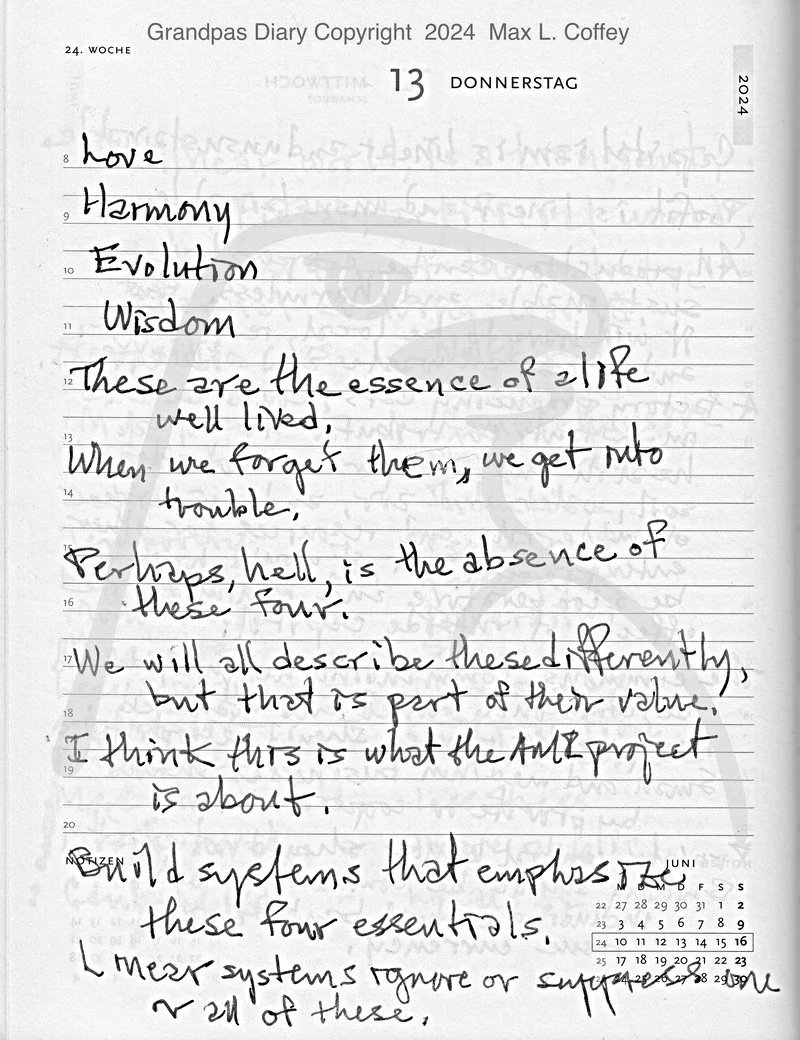 Grandpas Diary Copyright 2024 Max L. Coffey
24. WOCHE
13 DONNERSTAG
2024
8 Love
9 Harmony
10 Evolution
11 Wisdom
12 These are the essence of a life
well lived.
13
When we forget them, we get into
14 trouble.
15
Perhaps, hell, is the absence of
16 these four.
17 We will all describe these differently,
but that is part of their value.
18
I think this is what the AMI project
19
is about.
20
NOTIZEN
Build systems that emphasize
these four essentials.
Linear systems ignore or suppress one
or all of these.
JUNI
M D M D F S S
22 27 28 29 30 31 1 2
23 3 4 5 6 7 8 9
24 10 11 12 13 14 15 16
25 17 18 19 20 21 22 23
24 25 26 27 28 29 30